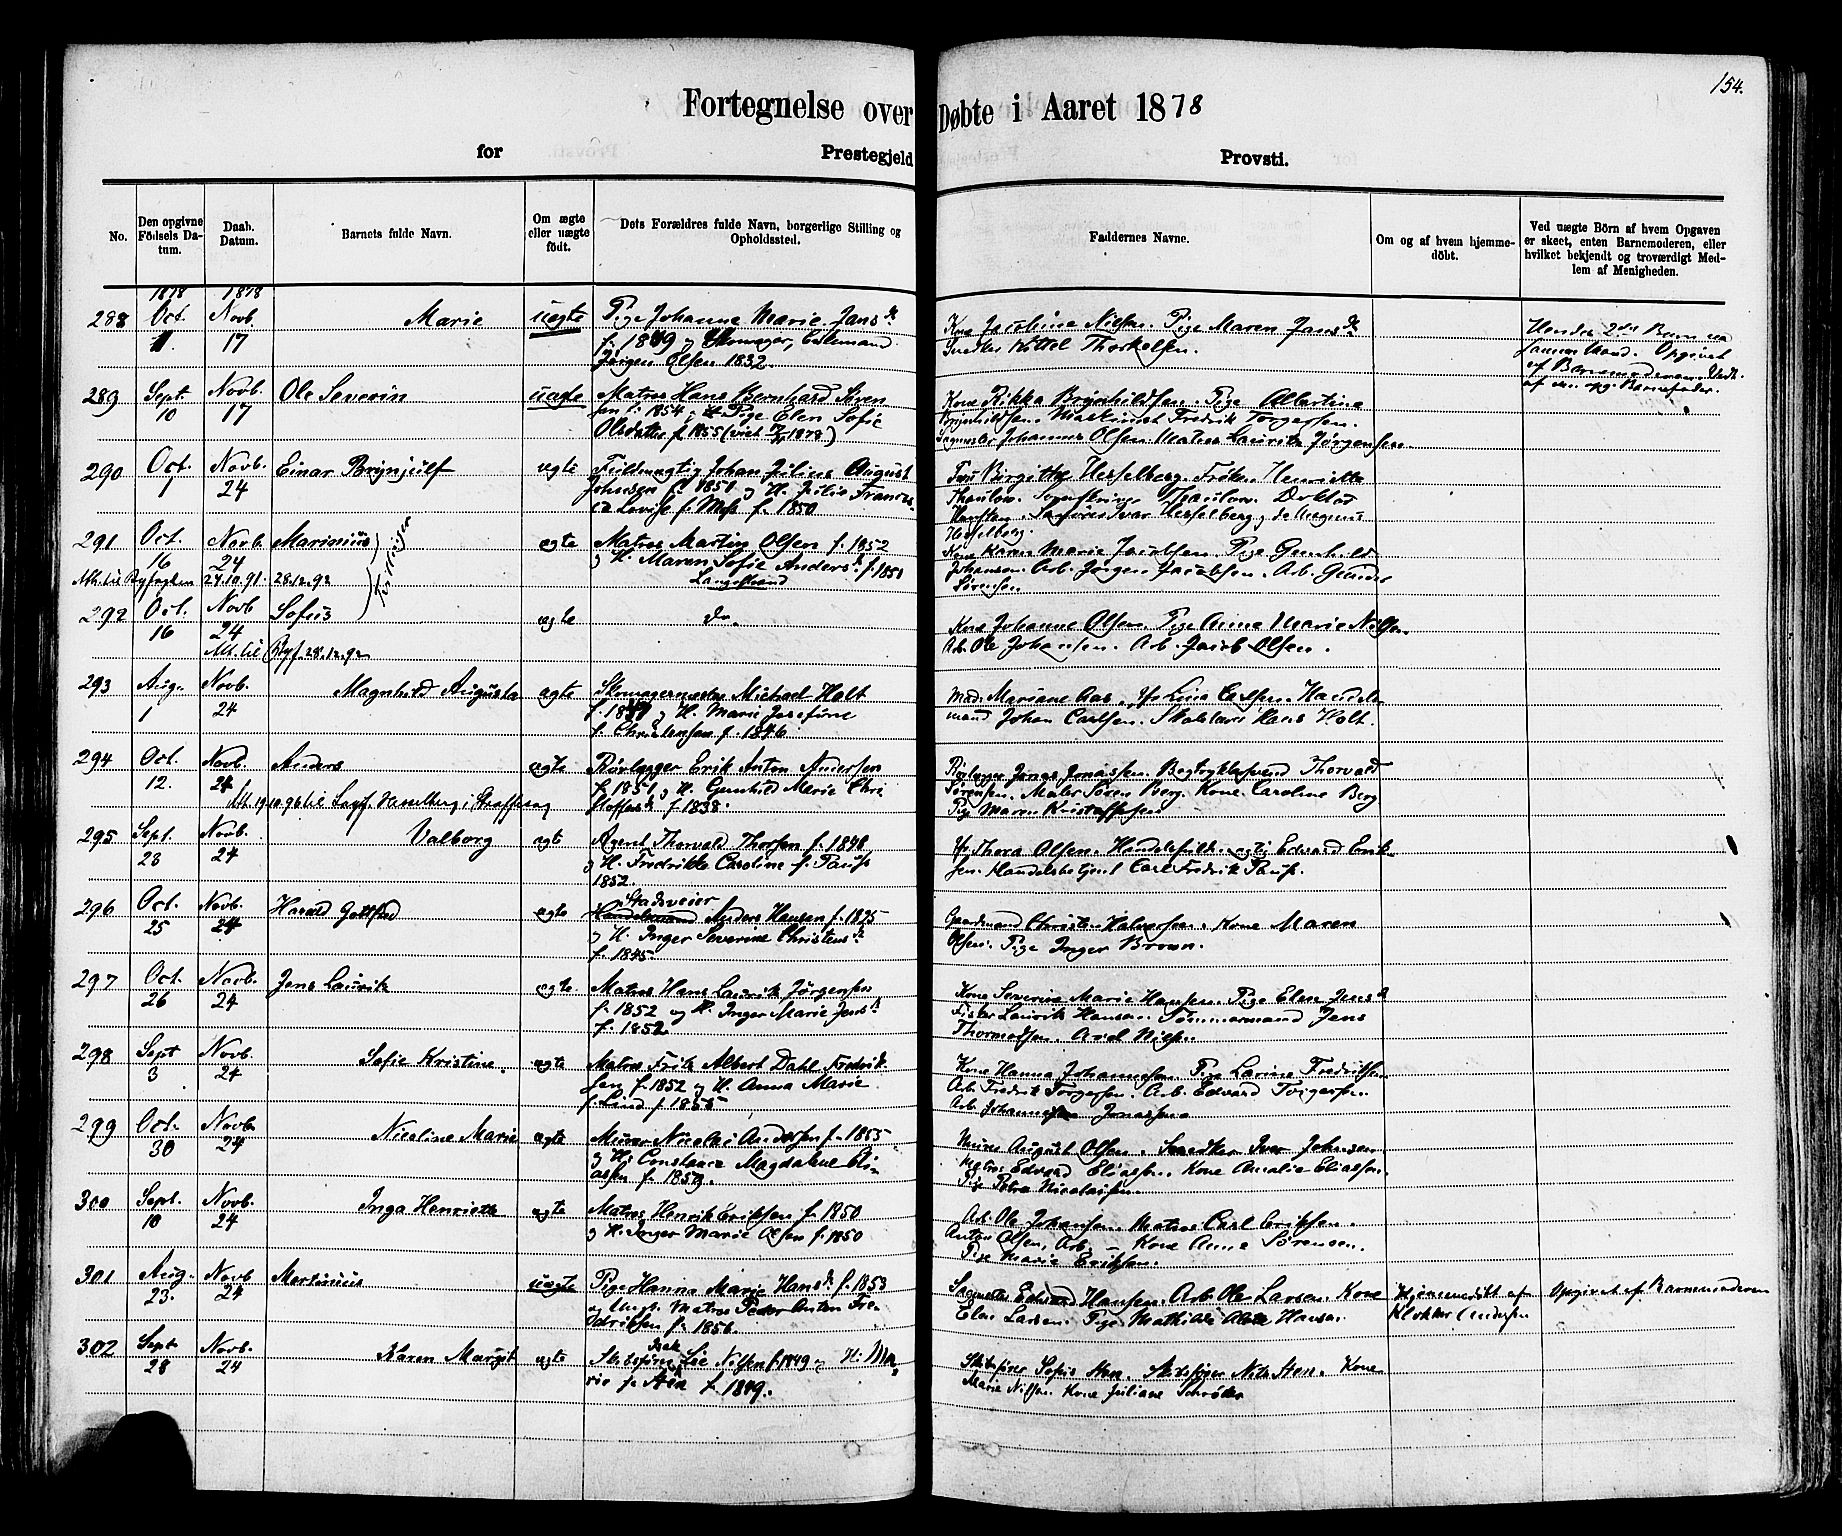 154.
Fortegnelse over Døbte i Aaret 1878
for Prestegjeld Provsti.
No.
Den opgivne Födsels Datum.
Daab. Datum.
Barnets fulde Navn.
Om ægte eller uægte födt.
Dets Forældres fulde Navn, borgerlige Stilling og Opholdssted.
Faddernes Navne.
Om og af hvem hjemmedöbt.
Ved uægte Börn af hvem Opgaven er skeet, enten Barnemoderen, eller hvilket bekjendt og troværdigt Medlem af Menigheden.
1878 1878
288 Oct. Novb. 17 Marie uægte
Pige Johanne Marie Jansd.
f. 1849 og Skomager,
Jørgen Olsen 1832.
Kone Jacobine Nilsen. Pige Maren Jansd.
Snedker Kittel Thorkelsen.
Hendes 2det Barn
Opgivet
af Barnemoderen.
af den opg. Barnefader.
289 Sept 10 Novb. 17 Ole Severin uægte
Matros Hans Bernhard Søren
sen f. 1854 og Pige Elen Sofie
Olsdatter f. 1855 (viet 1878)
Kone Rikka Brynhildsen. Pige Albertine
Brynhildsen. Maskinist Fredrik Torgersen.
Johannes Olsen. Matros Lauritz Jørgensen
290 Oct. 1 Novb. 24 Einar Brynjulf ægte
Fuldmægtig Johan Julius August
Johnsen f. 1851 og H. Julie Francis
ca Lovise f. Moss f. 1850
Fru Birgitte Hesselberg. Frøken Henriette
Thaulow. Sorenskriver Thaulow. Doktor
Ivar Hesselberg og
Hesselberg.
291 Oct. 16 Novb. 24 Marinius ægte
Tvillinger
Matros Martin Olsen f. 1852
og H. Maren Sofie Andersd. f. 1850
Langestrand
Att. til Byfogden 24.10.91. 28.12.92
Kone Karen Marie Jacobsen. Pige Gunhild
Johansen. Arb. Jørgen Jacobsen. Arb. Gunder
Sørensen
292 Oct. 16 Novb 24 Sofus ægte do.
Att. til Byf. 28.12.92
Kone Johanne Olsen. Pige Anne Marie Nilsen.
Arb. Ole Johansen. Arb. Jacob Olsen.
293 Aug. 1 Novb. 24 Magnhild Augusta ægte
Skomagermester Michael Holt
og H. Marie Josefine
f. Christensen f. 1846
Mad. Mariane Aas. Lina Carlsen. Handels
mand Johan Carlsen. Skolelærer Hans Holt.
294 Oct. 12. Novb. 24 Anders ægte
Att. 19.10.96 til
Rørlægger Erik Anton Andersen
f. 1851 og H. Gunhild Marie Chri
stoffersd. f. 1838.
Rørlægger Jonas Jonassen. Bogtrykkersvend Thorvald
Sørensen. Maler Søren Berg. Kone Caroline Berg
Pige Maren Kristoffersen
295 Sept. 23 Novb. 24 Valborg ægte
Agent Thorvald Thorsen f. 1848
og H. Fredrikke Caroline f. Paus
1852.
Thora Olsen. Handelsfuldmægtig Edvard Erik
sen. Handelsbetjent Carl Fredrik Paus.
296 Oct. 25 Novb. 24 Harald Gottfred ægte
Stadsveier
Handelsmand Anders Hansen f. 1825
og H. Inger Severine Christensd.
f. 1845
Gaardmand Christen Halvorsen. Kone Maren
Olsen. Pige Inger Brown.
297 Oct. 26 Novb. 24 Jens Laurits ægte
Matros Hans Laurits Jørgensen
f. 1852 og H. Inger Marie Jensd.
f. 1852.
Kone Severine Marie Hansen. Pige Elen Jensd.
Fisker Laurits Hansen. Tømmermand Jens
Thormodsen. Axel Nilsen
298 Sept 3 Novb. 24 Sofie Kristine. ægte
Matros Fritz Albert Dahl Fredrik
sen f. 1852 og H. Anna Marie
f. Lind f. 1855
Kone Hanna Johannessen. Pige Larine Fredriksen
Arb. Fredrik Torgersen. Arb. Edvard Torgersen.
Arb. Johannes Jonassen
299 Oct. 30 Novb. 24 Nicoline Marie ægte
Murer Nicolai Andersen f. 1855
og H. Constance Magdalene Eli
assen f. 1859.
Murer August Olsen. Snedker Iver Johnsen
Matros Edvard Eliassen. Kone Amalie Eliassen.
Pige Petra Nicolaisen.
300 Sept. 10 Novb. 24 Inga Henriette ægte
Matros Henrik Eriksen f. 1850
og H. Inger Marie Olsen f. 1850
Arb. Ole Johansen. Matros Carl Eriksen.
Anton Olsen, Arb. – Kone Anne Sørensen.
Pige Marie Eriksen.
301 Aug. 23. Novb 24 Martinius uægte
Pige Hanna Marie Hansd. f. 1853
og Ungk. Matros Peder Anton Fre
driksen f. 1856.
Edvard Hansen. Arb. Ole Larsen. Kone
Elen Larsen. Pige Mathilde Hansen.
Hjemmedøbt af
Klokker Andersen
Opgivet af Barnemoderen
302 Sept 28 Novb. 24 Karen Margit ægte
Isak
Skibsfører Lie Nilsen f. 1849 og H. Ma
rie f. f. 1849.
Skibsfører Sofus Steen. Skibsfører Nils Steen. Kone
Marie Nilsen. Kone Juliane Schrøder